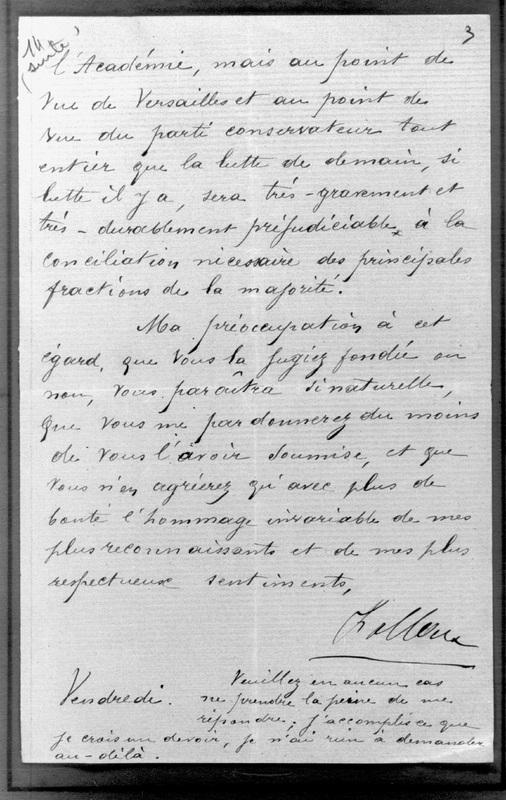 14
(suite)
3
l'Académie, mais au point de
vue de Versailles et au point de
vue du parti conservateur tout
entier que la lutte de demain, si
lutte il y a, sera très-gravement et
très-durablement préjudiciable à la
conciliation nécessaire des principales
fractions de la majorité.
Ma préoccupation à cet
égard, que vous la jugiez fondée ou
non, vous paraîtra si naturelle,
que vous me pardonnerez du moins
de vous l'avoir soumise, et que
vous n'en agréerez qu'avec plus de
bonté l'hommage invariable de mes
plus reconnaissants et de mes plus
respectueux sentiments,
Falloux
Vendredi.
Veuillez en aucun cas
ne prendre la peine de me
répondre; j'accomplis ce que
je crois un devoir, je n'ai rien à demander
au-delà.